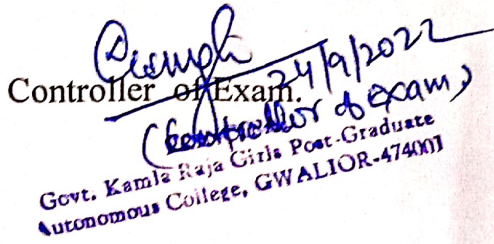 Controller of Exam.
24/9/2022
(Controller of Exam)
Govt. Kamla Raja Girls Post-Graduate
Autonomous College, GWALIOR-474001